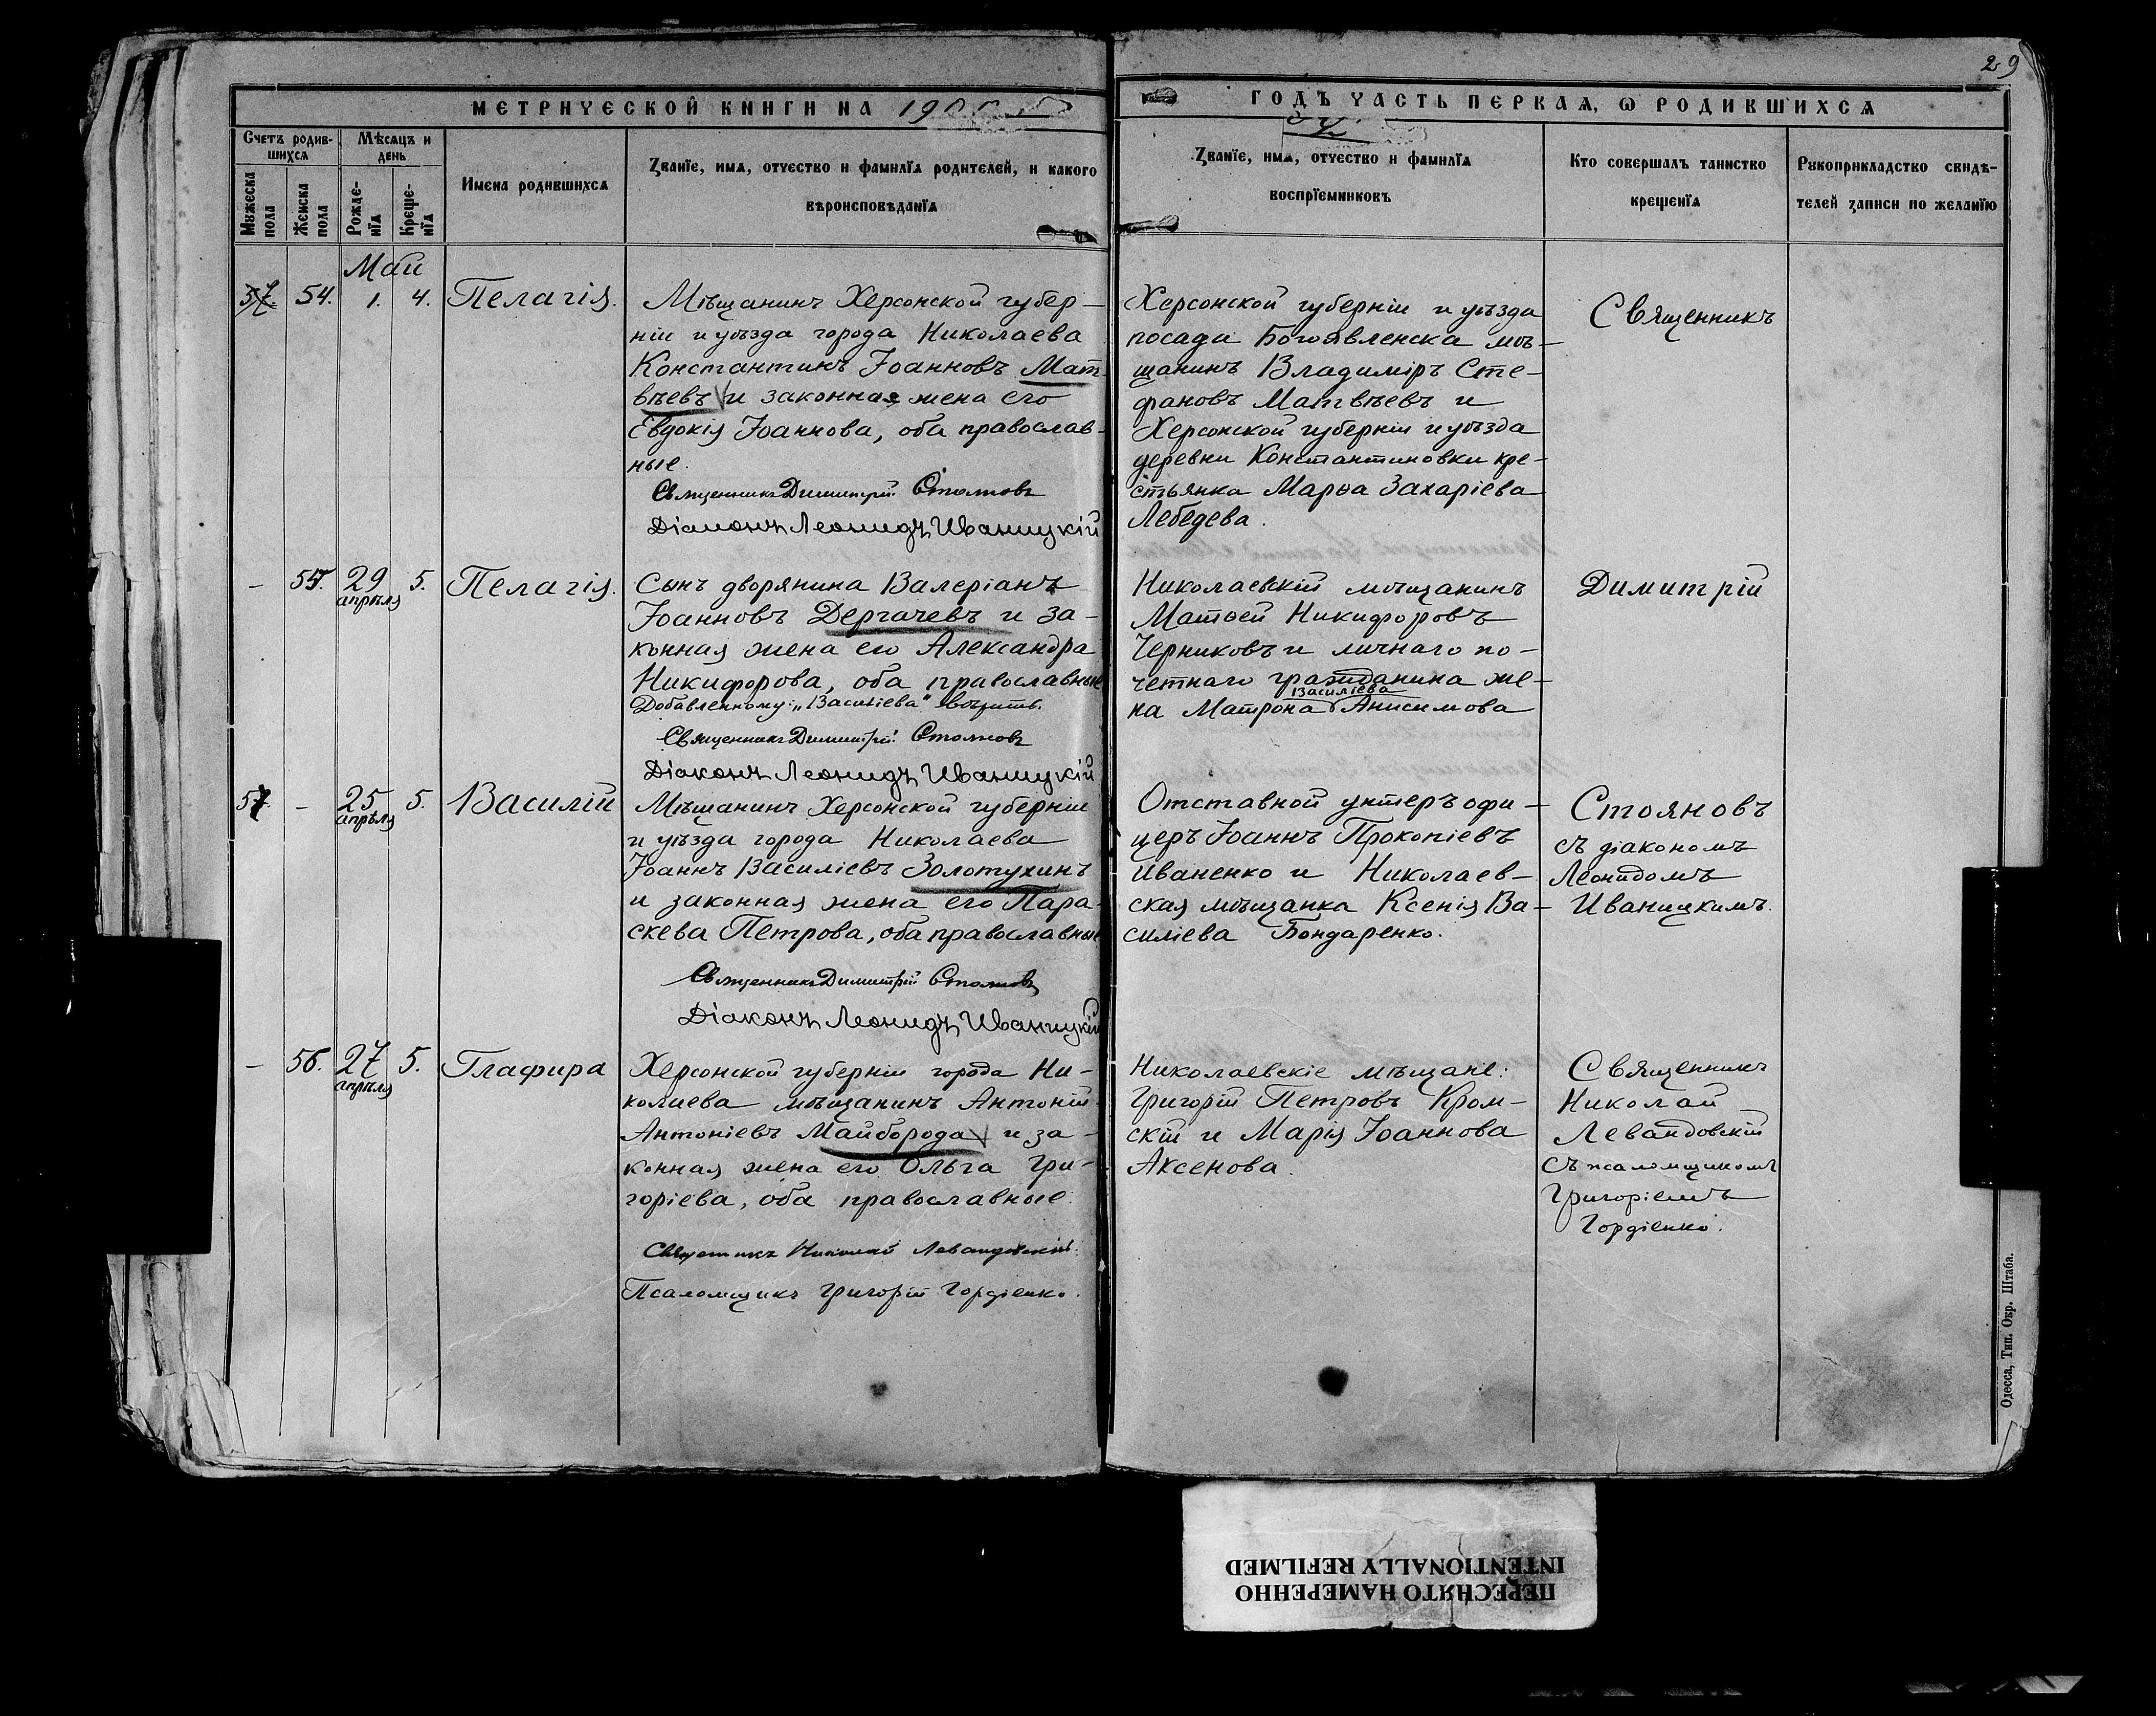 29
МЕТРИЧЕСКОЙ КНИГИ НА
ГОДЪ ЧАСТЬ ПЕРВАЯ, Ѡ РОДИВШИХСЯ
Счетъ родив-
шихся
Мѣсяцъ и
день
Мужеска
пола
Женска
пола
Рожде-
нїя
Креще-
нїя
Имена родившихся
Званїе, имя, отчество и фамилїя родителей, и какого
вѣроисповѣданїя
Званїе, имя, отчество и фамилїя
воспрїемниковъ
Кто совершалъ таинство
крещенїя
Рукоприкладство свидѣ-
телей записи по желанїю
Май
57. 54. 1. 4. Пелагія.
Мѣщанинъ Херсонской губер-
ніи и уѣзда города Николаева
Константинъ Іоанновъ Мат-
вѣевъ и законная жена его
Евдокія Іоаннова, оба православ-
ные.
Священникъ Димитрій Стояновъ
Діаконъ Леонидъ Иваницкій
Херсонской губерніи и уѣзда
посада Богоявленска мѣ-
щанинъ Владиміръ Сте-
фановъ Матвѣевъ и
Херсонской губерніи и уѣзда
деревни Константиновки кре-
стьянка Марѳа Захаріева
Лебедева.
Священникъ
- 55. 29 апрѣля 5. Пелагія.
Сынъ дворянина Валеріанъ
Іоанновъ Дергачевъ и за-
конная жена его Александра
Никифорова, оба православные
Добавленному: „Василіева" вѣрить.
Священникъ Димитрій Стояновъ
Діаконъ Леонидъ Иваницкій
Николаевскій мѣщанинъ
Матѳей Никифоровъ
Черниковъ и личнаго по-
четнаго гражданина же-
Василіева
на Матрона Анисимова
Димитрій
57. - 25 апрѣля 5. Василій
Мѣщанинъ Херсонской губерніи
и уѣзда города Николаева
Іоаннъ Василіевъ Золотухинъ
и законная жена его Пара-
скева Петрова, оба православные
Священникъ Димитрій Стояновъ
Діаконъ Леонидъ Иваницкій
Отставной унтеръ офи-
церъ Іоаннъ Прокопіевъ
Иваненко и Николаев-
ская мѣщанка Ксенія Ва-
силіева Бондаренко.
Стояновъ
съ діакономъ
Леонидомъ
Иваницкимъ.
- 56. 27 апрѣля 5. Глафира
Херсонской губерніи города Ни-
колаева мѣщанинъ Антоній
Антоніевъ Майборода и за-
конная жена его Ольга Гри-
горіева, оба православные.
Священникъ Николай Левандовскій.
Псаломщикъ Григорій Гордіенко.
Николаевскіе мѣщане:
Григорій Петровъ Кром-
скій и Марія Іоаннова
Аксенова.
Священникъ
Николай
Левандовскій
съ псаломщикомъ
Григоріемъ
Гордіенко.
Одесса, Тип. Окр. Штаба.
ПЕРЕСНЯТО НАМЕРЕННО
INTENTIONALLY REFILMED